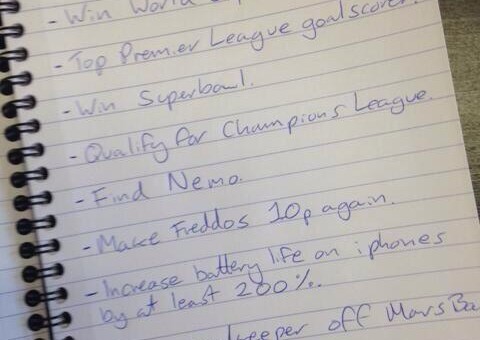 - Win World
- Top Premier League goalscorer.
- Win Superbowl.
- Qualify for Champions League.
- Find Nemo.
- Make Freddos 10p again.
- Increase battery life on iphones
by at least 200%.
keeper off Mars Ba